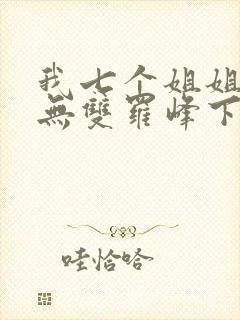 我七个姐姐
無雙羅峰下
哇恰哈